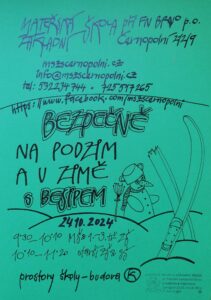 MATEŘSKÁ ŠKOLA PŘI FN BRNO p.o.
ZÁKLADNÍ ČERNOPOLNÍ 22/9
mszscernopolni.cz
info@mszscernopolni.cz
https://www.facebook.com/mszscernopolni
BEZPEČNĚ
NA PODZIM
A V ZIMĚ
S BESIPEM
24.10.2024
prostory školy - budova K